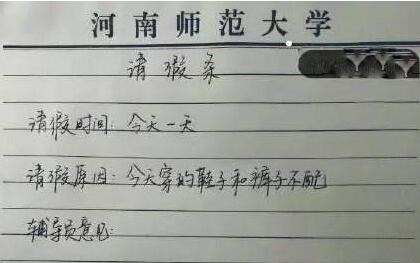 河南师范大学
请假条
请假时间：今天一天
请假原因：今天穿的鞋子和裤子不配
辅导员意见：